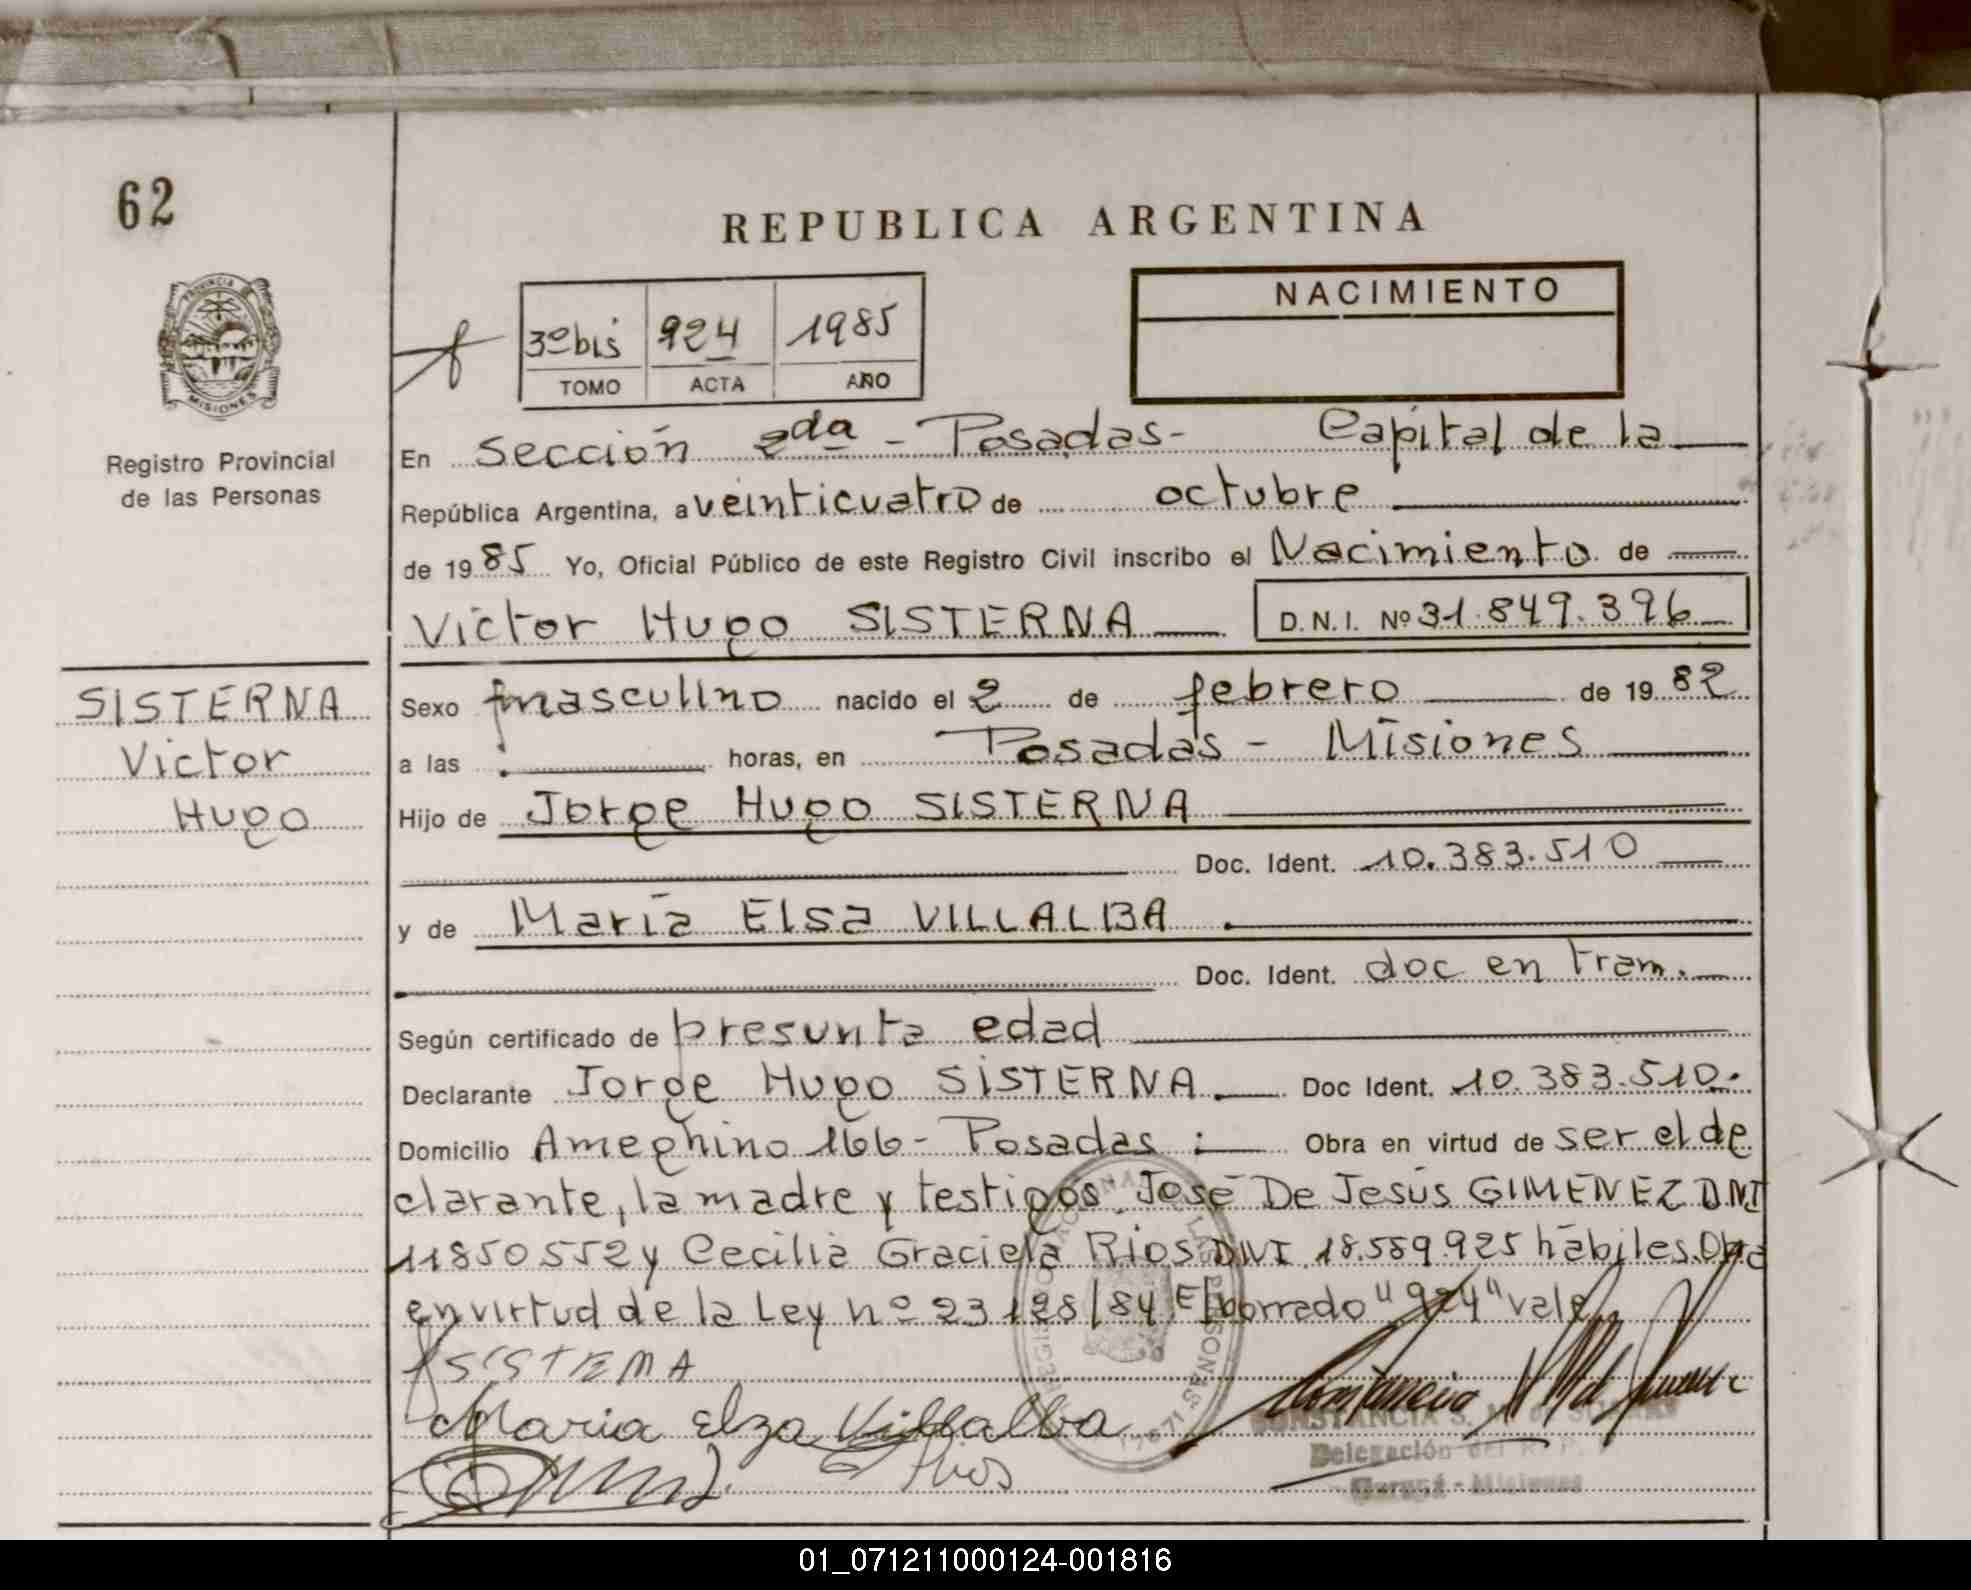 62
REPUBLICA ARGENTINA
NACIMIENTO
3º bis 924 1985
TOMO ACTA AÑO
PROVINCIA DE
MISIONES
Registro Provincial
de las Personas
En Sección 2da - Posadas - Capital de la
República Argentina, a veinticuatro de octubre
de 1985 Yo, Oficial Público de este Registro Civil inscribo el Nacimiento de
Victor Hugo SISTERNA D.N.I. Nº 31.849.396
SISTERNA
Victor
Hugo
Sexo masculino nacido el 2 de febrero de 1982
a las horas, en Posadas - Misiones
Hijo de Jorge Hugo SISTERNA
Doc. Ident. 10.383.510
y de María Elsa VILLALBA
Doc. Ident. doc en tram.
Según certificado de presunta edad
Declarante Jorge Hugo SISTERNA Doc Ident. 10.383.510.
Domicilio Ameghino 166 - Posadas : Obra en virtud de ser el de
clarante, la madre y testigos José De Jesús GIMENEZ DNI
11850552 y Cecilia Graciela Rios DNI 18.559.925 hábiles. Obra
en virtud de la Ley nº 23128/84 E/borrado "924" vale
SISTERNA
Maria Elza Villalba
Rios
CONSTANCIA S. M. de
Delegación del R. P.
Garupá - Misiones
01_071211000124-001816